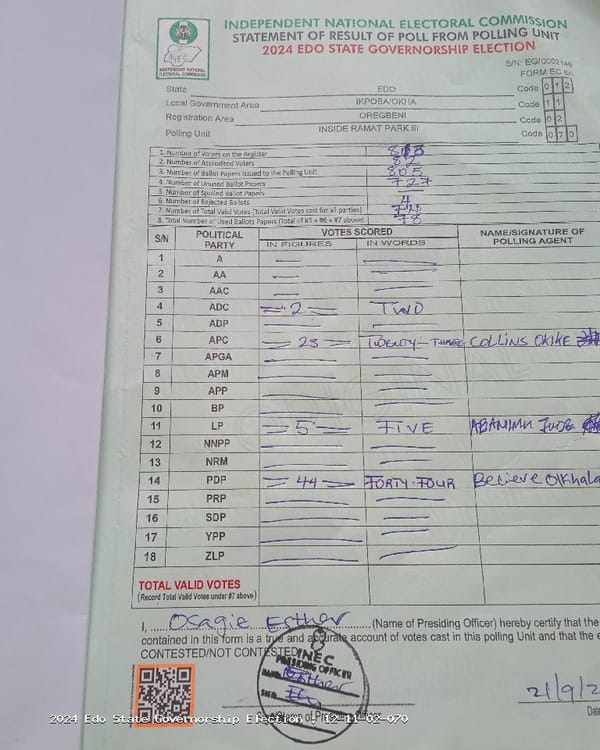 INDEPENDENT NATIONAL ELECTORAL COMMISSION
STATEMENT OF RESULT OF POLL FROM POLLING UNIT
2024 EDO STATE GOVERNORSHIP ELECTION
INEC
INDEPENDENT NATIONAL ELECTORAL COMMISSION
S/N: EG/0002146
FORM EC 8A
State EDO Code 0 1 2
Local Government Area IKPOBA/OKHA Code 1 1
Registration Area OREGBENI Code 0 2
Polling Unit INSIDE RAMAT PARK III Code 0 7 0
1. Number of Voters on the Register
2. Number of Accredited Voters 82
3. Number of Ballot Papers Issued to the Polling Unit 805
4. Number of Unused Ballot Papers 727
5. Number of Spoiled Ballot Papers —
6. Number of Rejected Ballots 4
7. Number of Total Valid Votes (Total Valid Votes cast for all parties)
8. Total Number of Used Ballots Papers (Total of #5 + #6 + #7 above) 78
S/N POLITICAL PARTY VOTES SCORED NAME/SIGNATURE OF POLLING AGENT
IN FIGURES IN WORDS
1 A — —
2 AA — —
3 AAC — —
4 ADC =2= TWO
5 ADP — —
6 APC =23= TWENTY-THREE COLLINS OKIKE
7 APGA — —
8 APM — —
9 APP — —
10 BP — —
11 LP =5= FIVE
12 NNPP — —
13 NRM — —
14 PDP =44= FORTY-FOUR
15 PRP — —
16 SDP — —
17 YPP — —
18 ZLP — —
TOTAL VALID VOTES
(Record Total Valid Votes under #7 above)
I, Osagie Esther (Name of Presiding Officer) hereby certify that the
contained in this form is a true and accurate account of votes cast in this polling Unit and that the
CONTESTED/NOT CONTESTED
INEC
PRESIDING OFFICER
Esther
21/9/2
2024 Edo State Governorship Election : 12-11-02-070